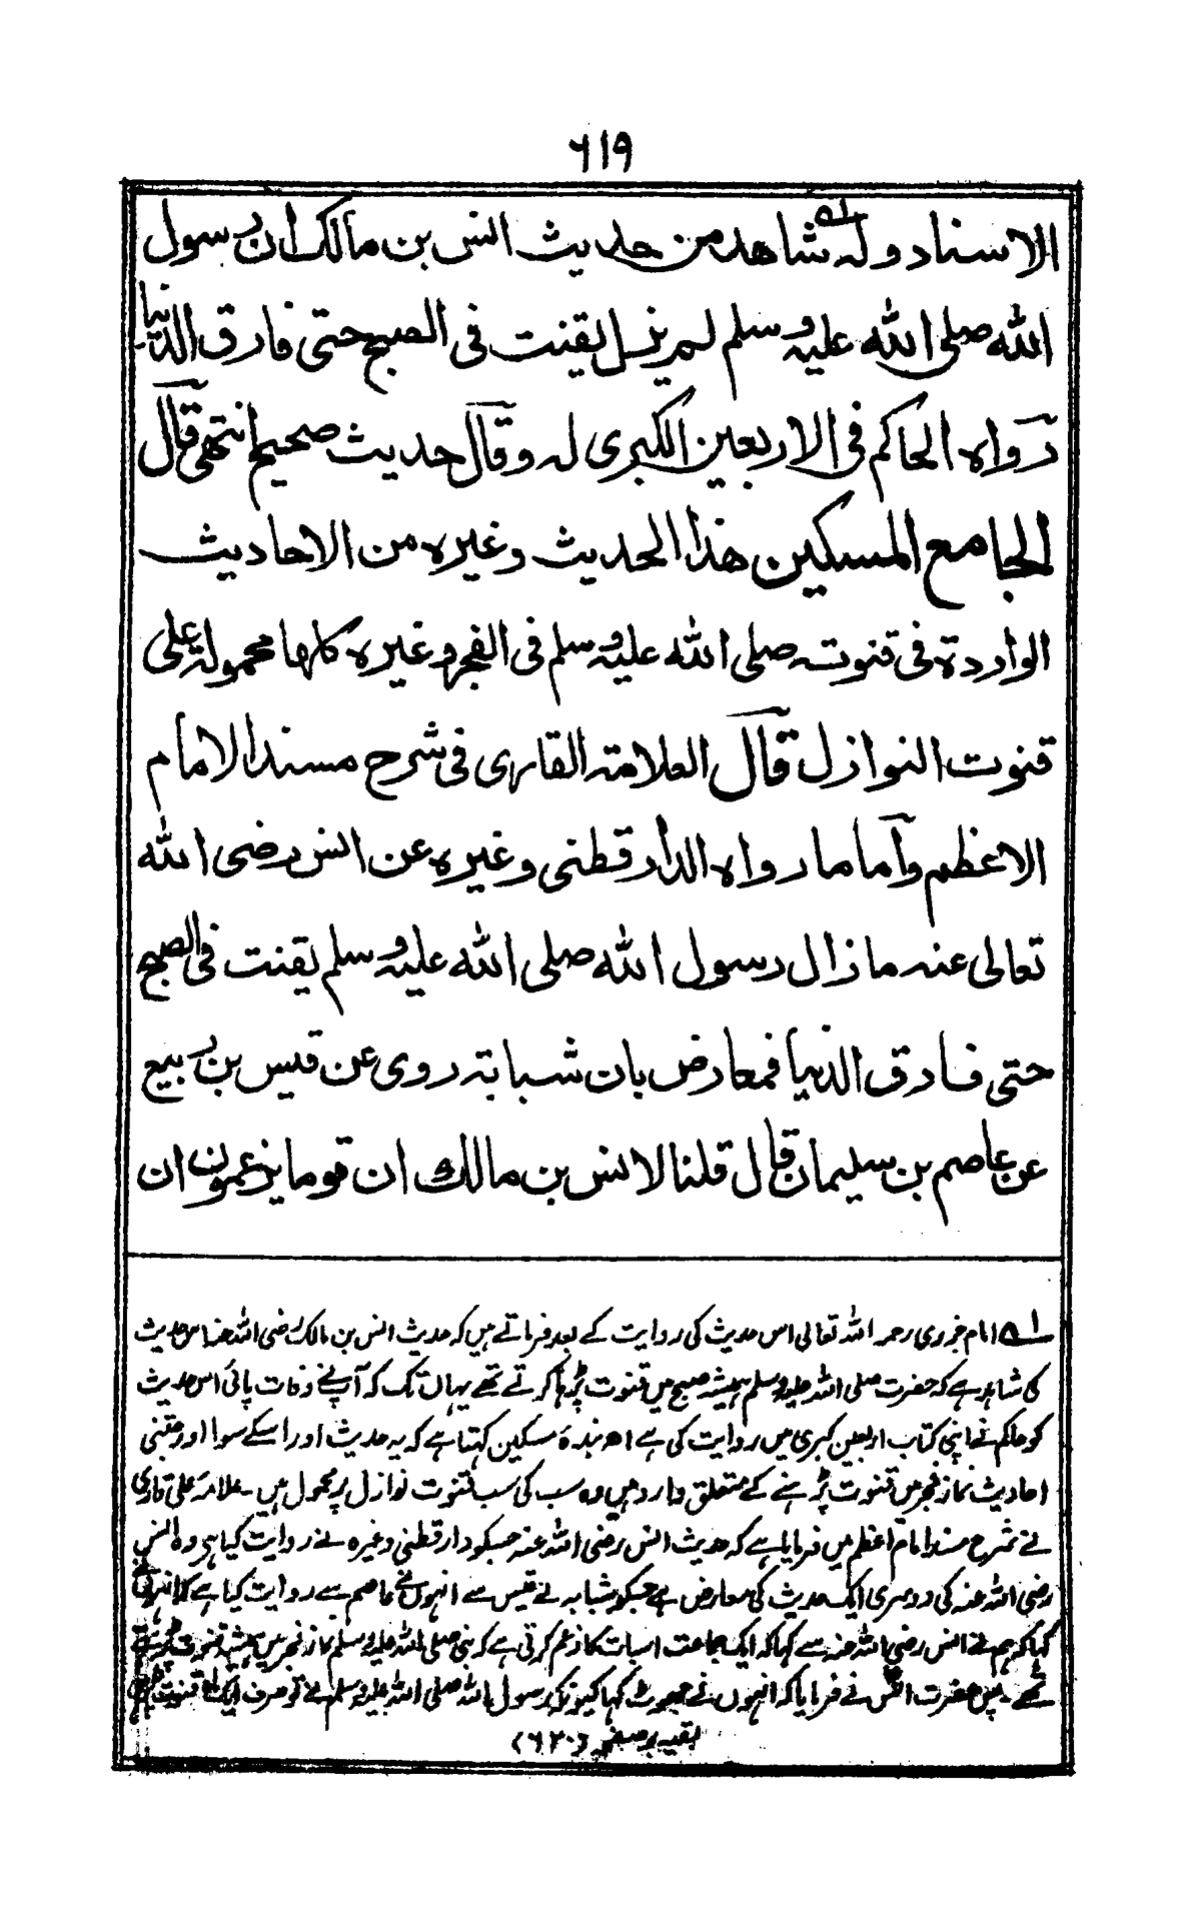 ۶۱۹
الاسناد وله ۱ه شاهد من حديث انس بن مالك ان رسول
الله صلى الله عليه وسلم لم يزل يقنت فى الصبح حتى فارق الدنيا
رواه الحاكم فى الاربعين الكبرى له وقال حديث صحيح انتهى قال
الجامع المسكين هذا الحديث وغيره من الاحاديث
الواردة فى قنوته صلى الله عليه وسلم فى الفجر وغيره كلها محمولة على
قنوت النوازل قال العلامة القارى فى شرح مسند الامام
الاعظم وآما ما رواه الدارقطنى وغيره عن انس رضى الله
تعالى عنه ما زال رسول الله صلى الله عليه وسلم يقنت فى الصبح
حتى فارق الدنيا فمعارض بان شبابة روى عن قيس بن ربيع
عن عاصم بن سليمان قال قلنا لانس بن مالك ان قوما يزعمون ان
۱ه امام جزری رحمہ اللہ تعالی اس حدیث کی روایت کے بعد فرماتے ہیں کہ حدیث انس بن مالک رضی اللہ عنہ اس حدیث
کا شاہد ہے کہ حضرت صلی اللہ علیہ وسلم ہمیشہ صبح میں قنوت پڑہا کرتے تھے یہاں تک کہ آپ نے وفات پائی اس حدیث
کو حاکم نے اپنی کتاب اربعین کبری میں روایت کی ہے اھ بندۂ مسکین کہتا ہے کہ یہ حدیث اور اسکے سوا اور جتنی
احادیث نماز فجر میں قنوت پڑہنے کے متعلق وارد ہیں وہ سب کی سب قنوت نوازل پر محمول ہیں ۔ علامہ علی قاری
نے شرح مسند امام اعظم میں فرمایا ہے کہ حدیث انس رضی اللہ عنہ جسکو دارقطنی وغیرہ نے روایت کیا ہی وہ انس
رضی اللہ عنہ کی دوسری ایک حدیث کی معارض ہے جسکو شبابہ نے قیس سے انہوں نے عاصم سے روایت کیا ہے کہ انہوں نے
کہا کہ ہم نے انس رضی اللہ عنہ سے کہا کہ ایک جماعت اسبات کا زعم کرتی ہے کہ نبی صلی اللہ علیہ وسلم نماز فجر میں ہمیشہ قنوت پڑہتے
تھے ۔ پس حضرت انس نے فرمایا کہ انہوں نے جھوٹ کہا کیونکہ رسول اللہ صلی اللہ علیہ وسلم نے تو صرف ایک ماہ قنوت پڑہی
بقیہ بر صفحہ (۶۲۰)